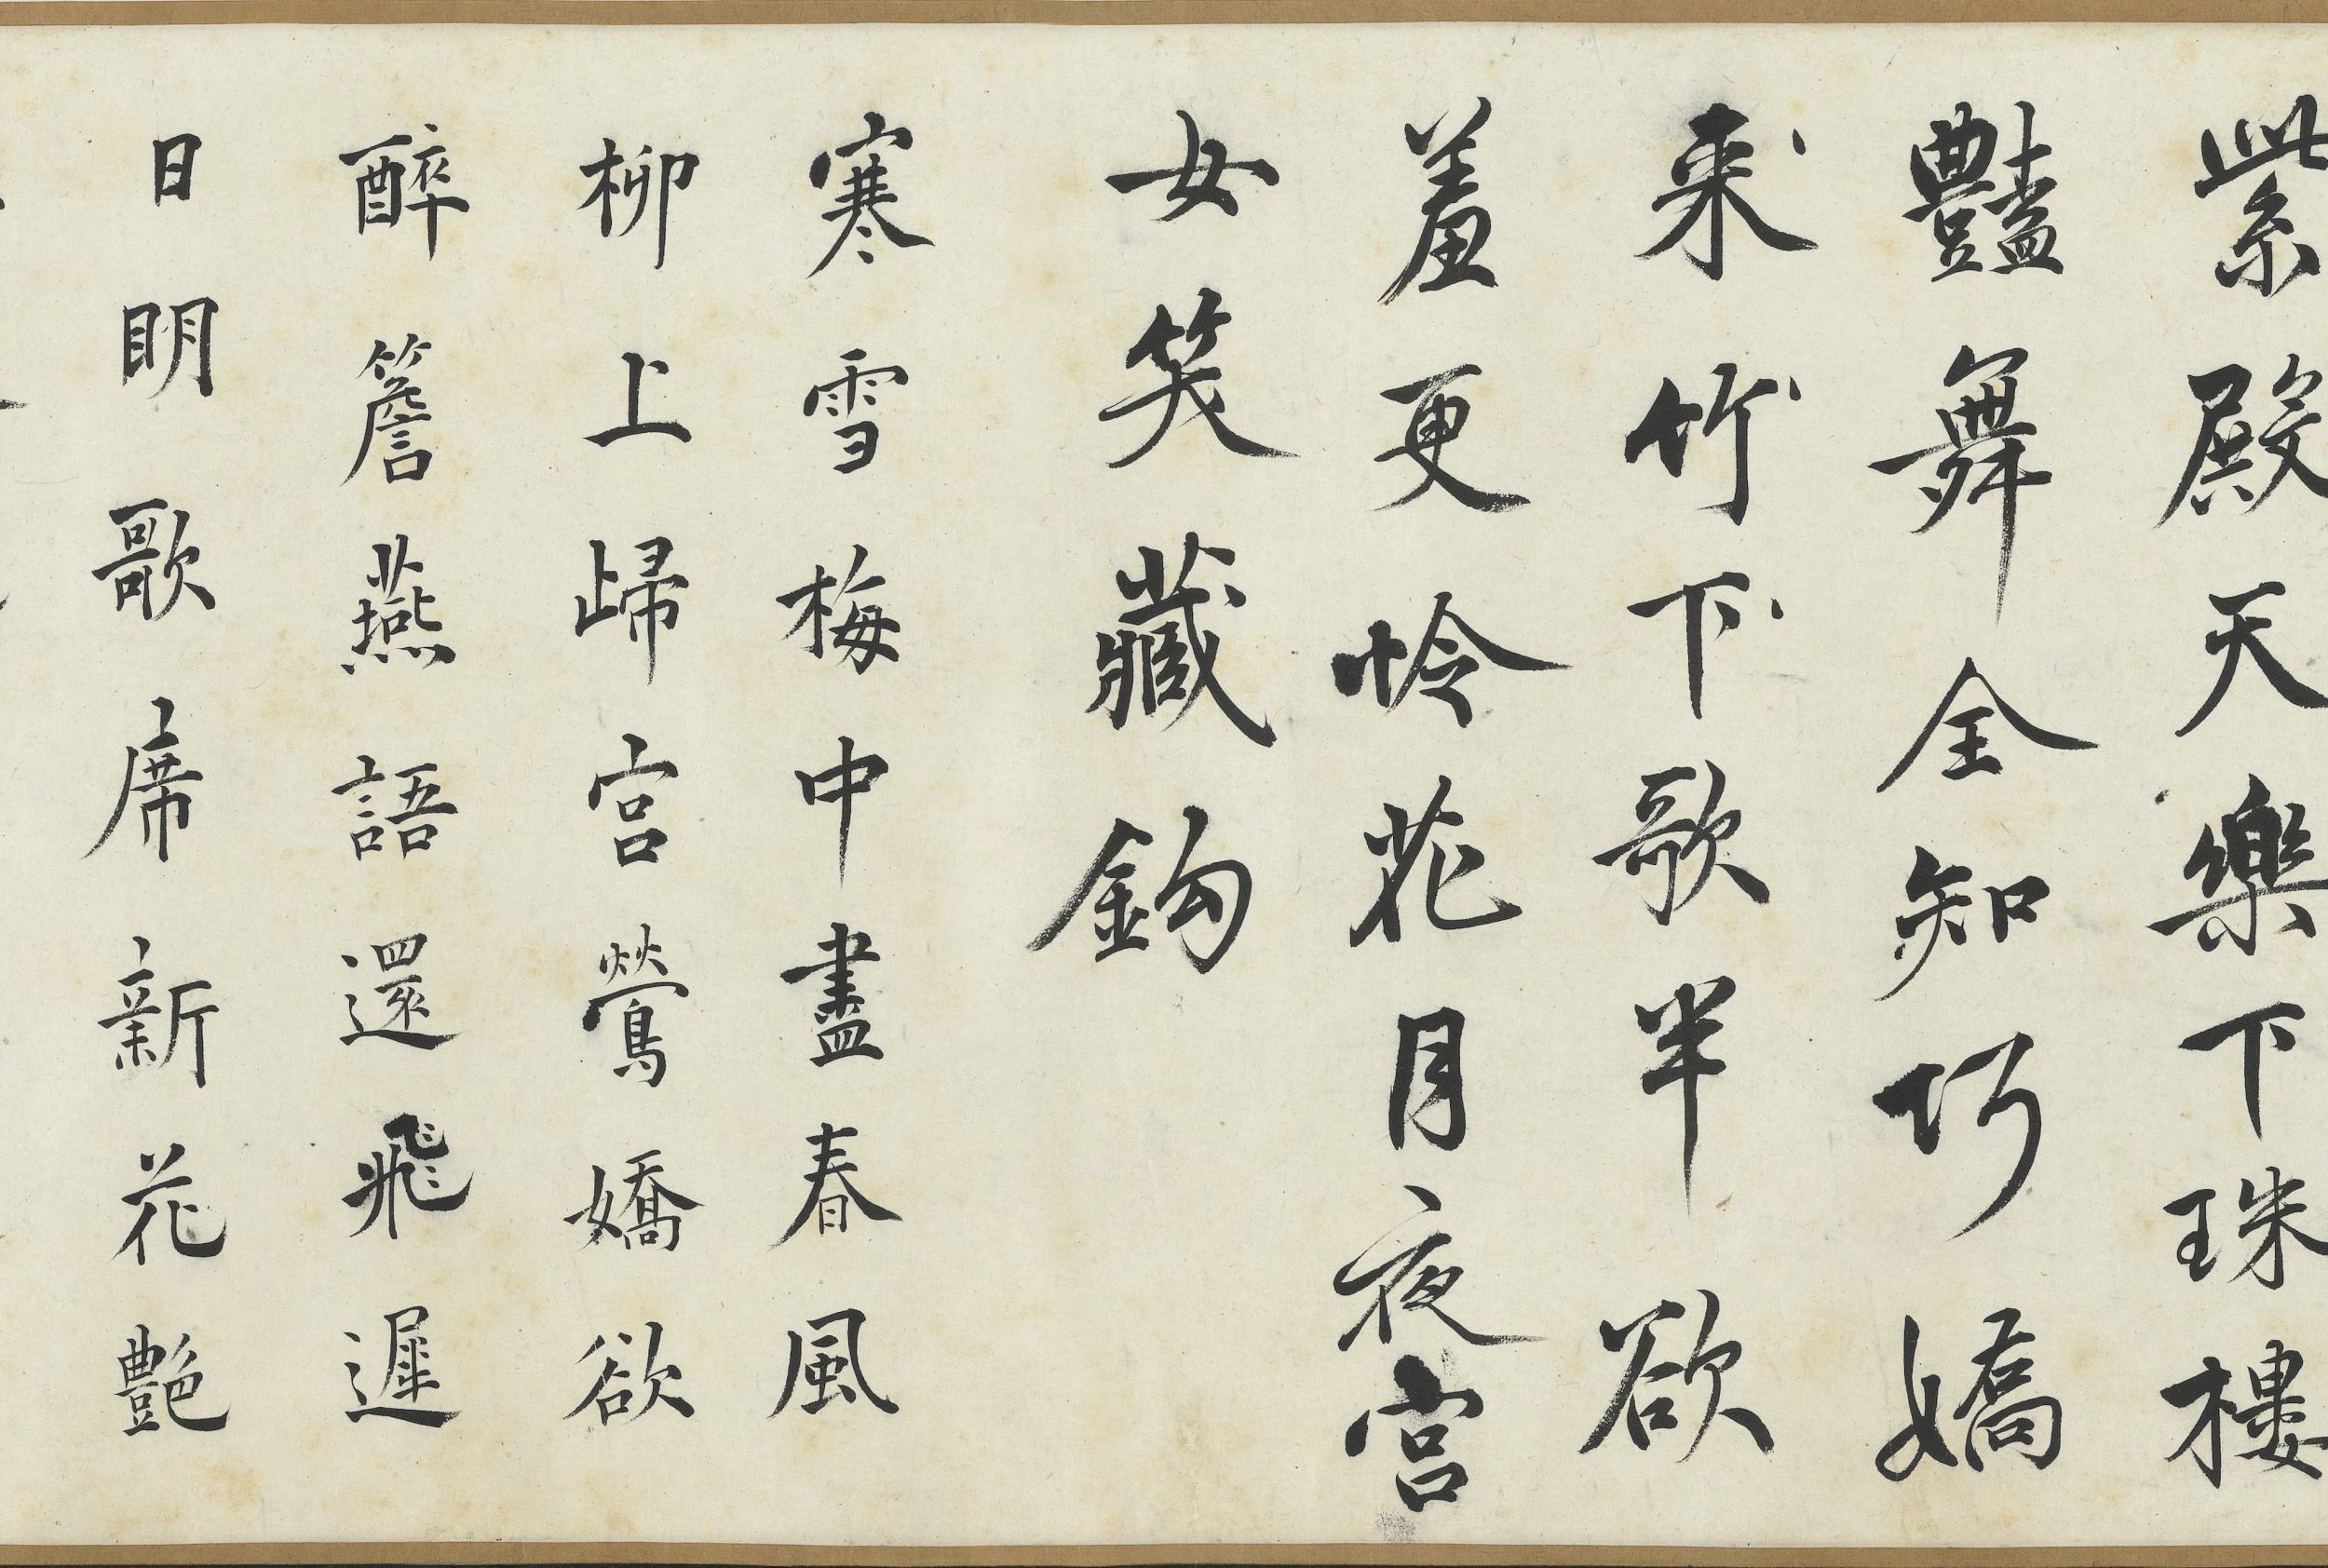 紫殿天樂下珠樓
豔舞全知巧嬌
来竹下歌半欲
羞更怜花月夜宮
女笑藏鉤
寒雪梅中盡春風
柳上歸宮鶯嬌欲
醉簷燕語還飛遲
日明歌席新花艶